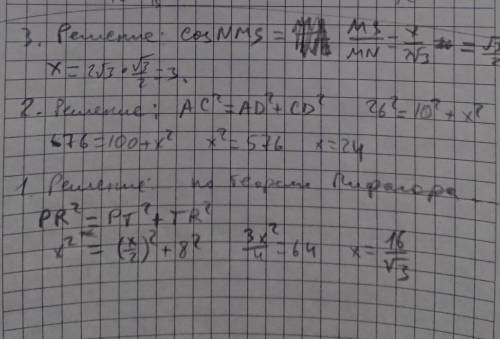 3. Решение: cos NMS = MS/MN = x/2√3 = √3/2
x = 2√3 · √3/2 = 3.
2. Решение: AC² = AD² + CD² 26² = 10² + x²
676 = 100 + x² x² = 576 x = 24
1. Решение: по теореме Пифагора
PR² = PT² + TR²
x² = (x/2)² + 8² 3x²/4 = 64 x = 16/√3